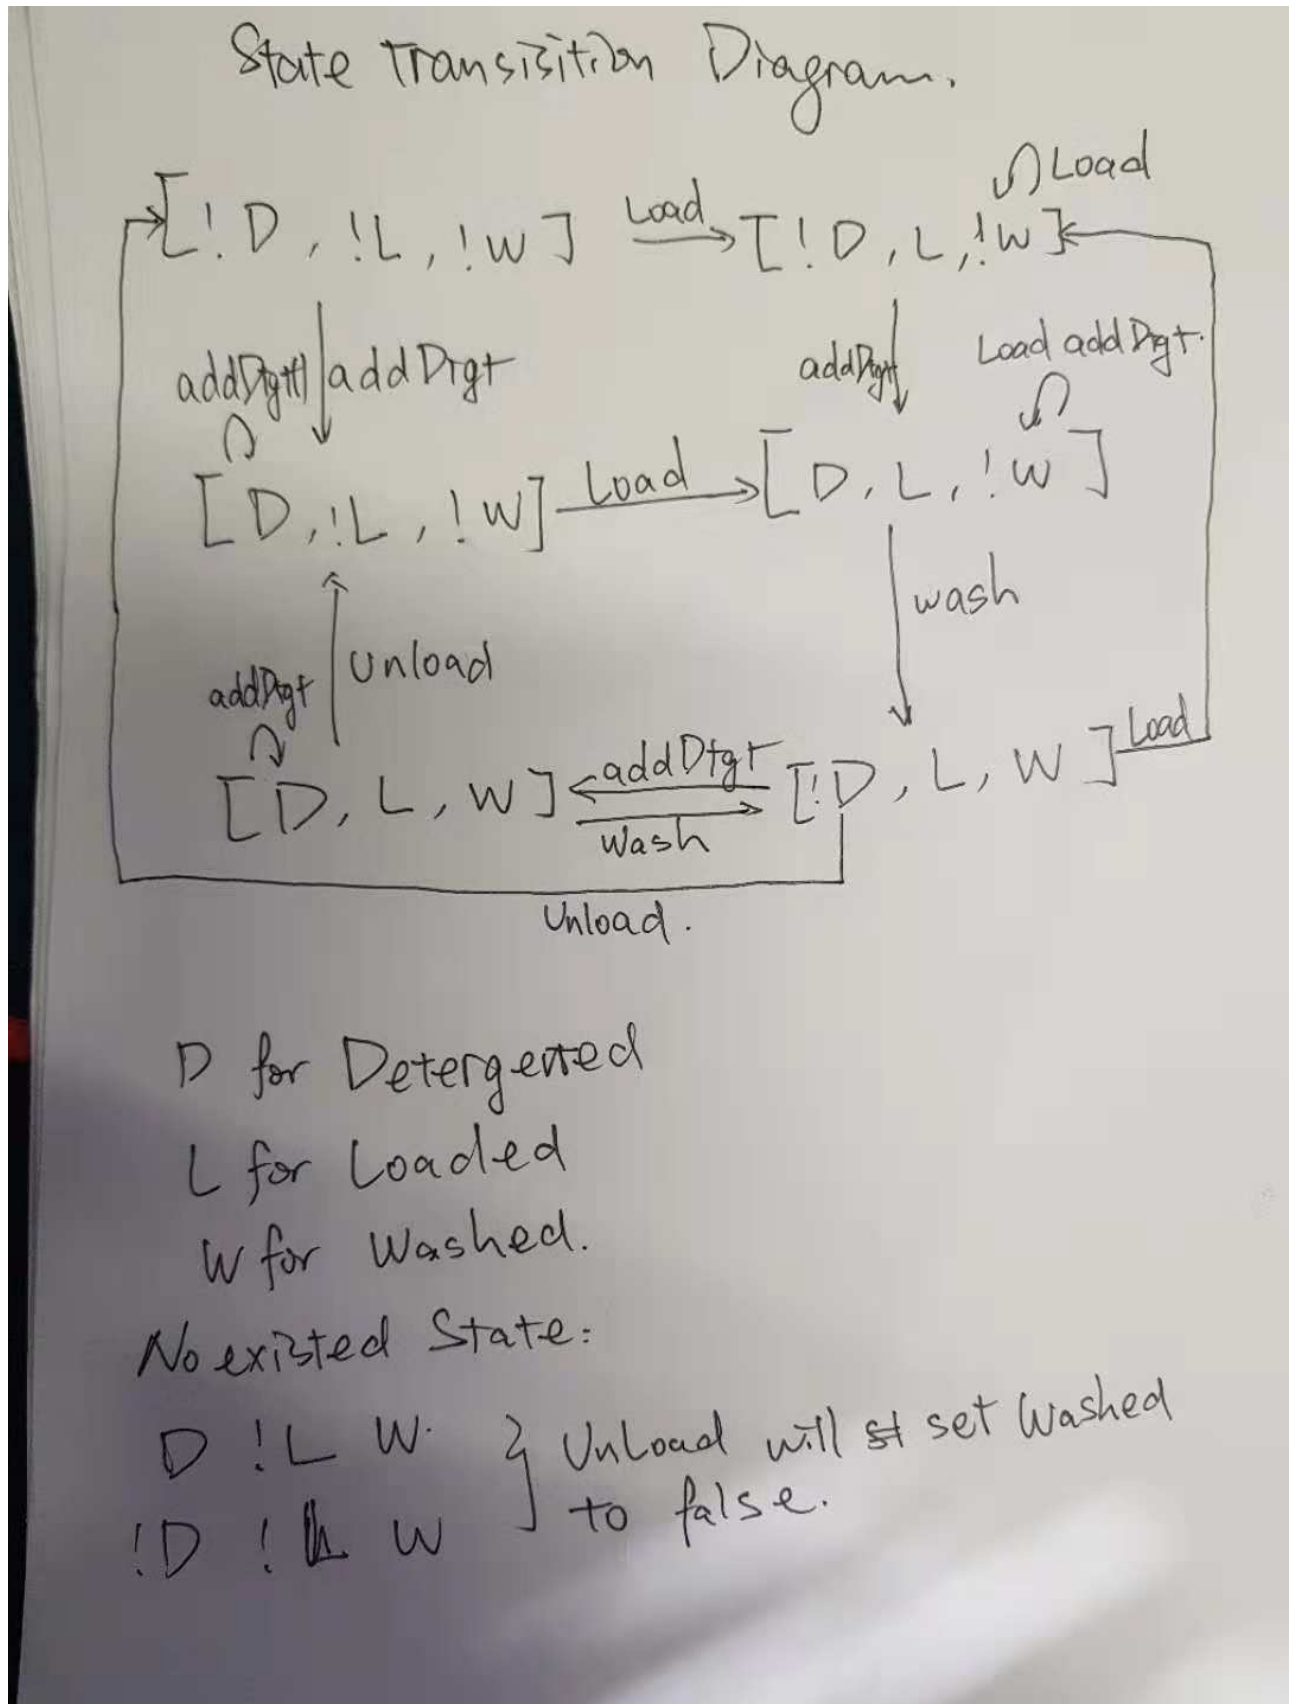 State Transisition Diagram.
Load
[!D, !L, !W] Load [!D, L, !W]
addDtgt addDtgt addDtgt Load addDtgt.
[D, !L, !W] Load [D, L, !W]
wash
Unload
addDtgt
[D, L, W] addDtgt [!D, L, W] Load
Wash
Unload.
D for Detergented
L for Loaded
W for Washed.
No existed State:
D !L W. } UnLoad will set Washed
!D !L W to false.